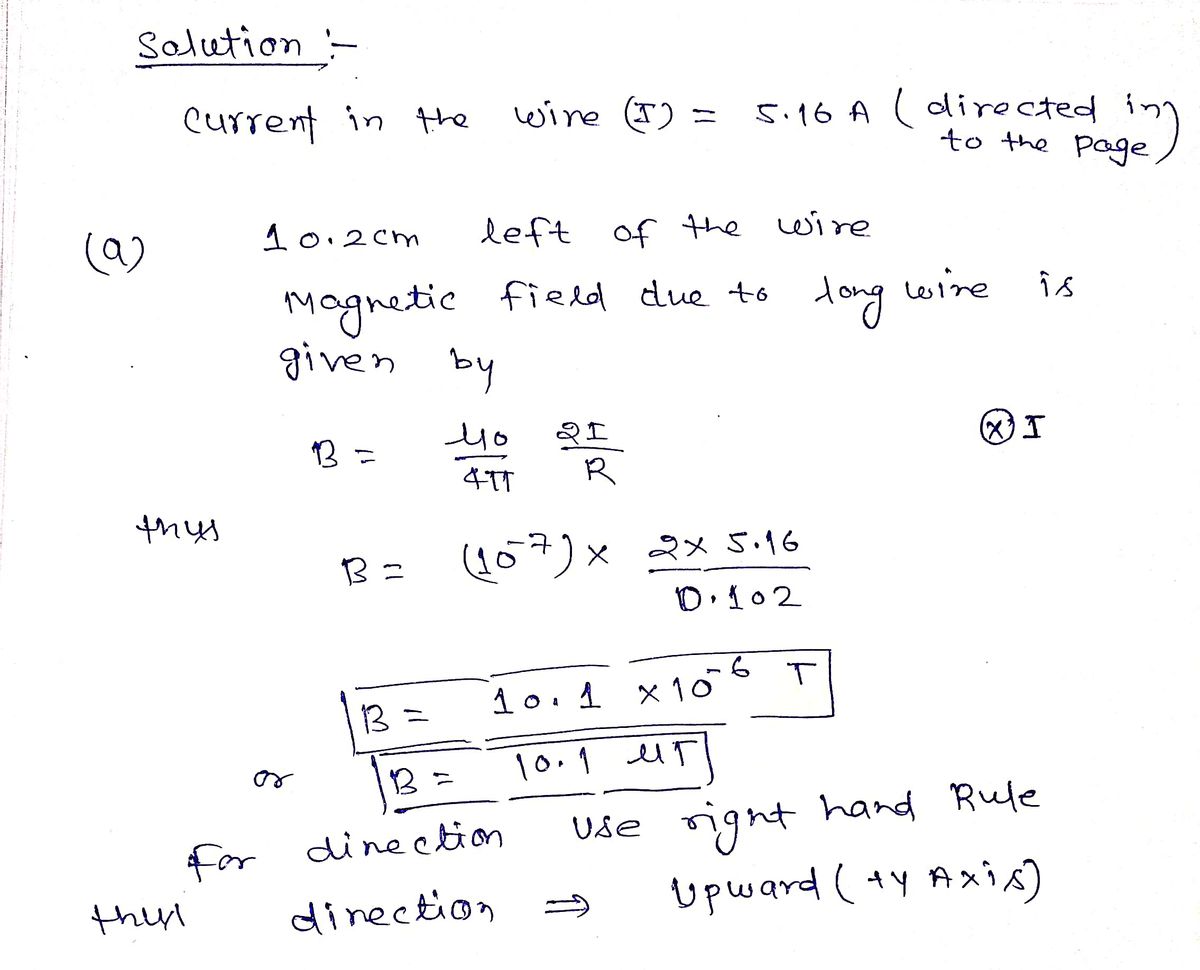 Solution :-
Current in the wire (I) = 5.16 A (directed in
to the page)
(a) 10.2cm left of the wire
Magnetic field due to long wire is
given by
B = μ0/4π 2I/R
ⓧ I
thus
B = (10^-7) × 2×5.16/0.102
B = 10.1 × 10^-6 T
or B = 10.1 μT
For direction use right hand Rule
thus direction ⇒ Upward (+y Axis)